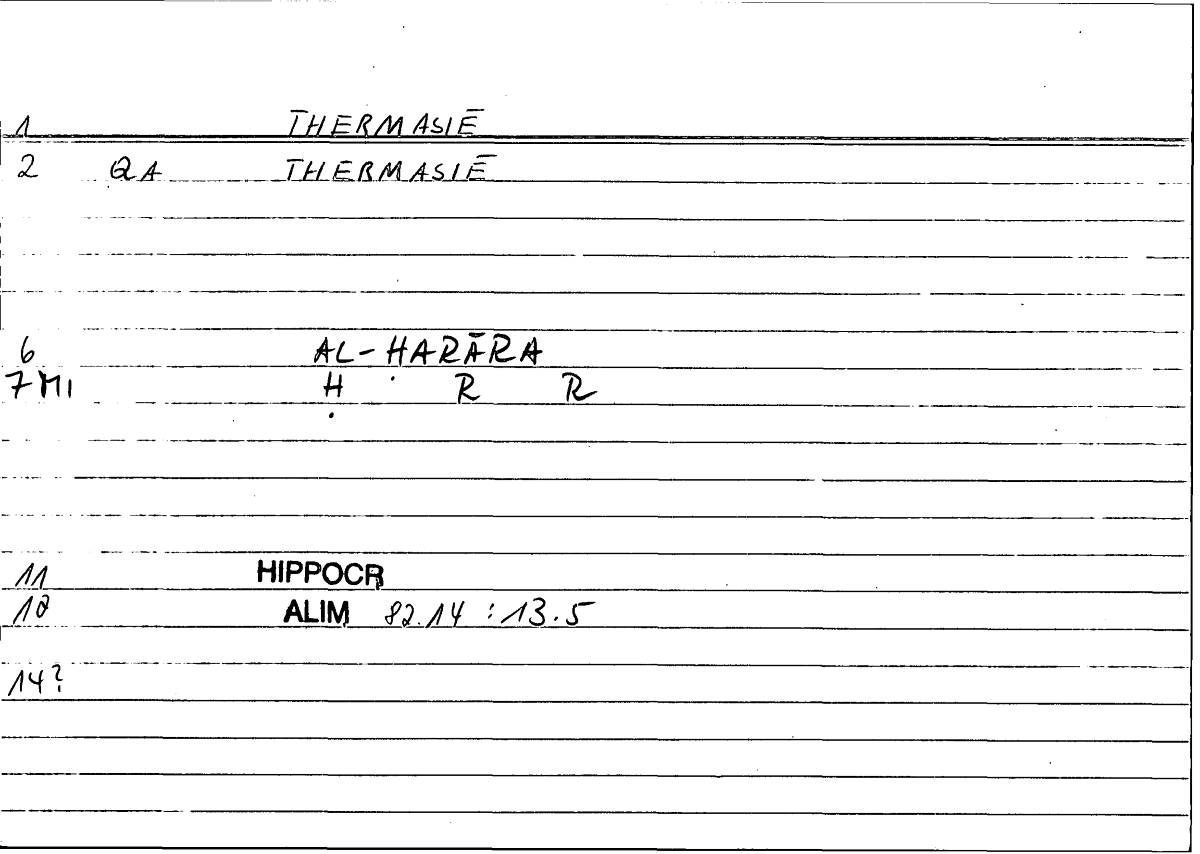 1 THERMASIĒ
2 QA THERMASIĒ
6 AL-ḤARĀRA
7 MI Ḥ R R
11 HIPPOCR
12 ALIM 82.14 : 13.5
14?